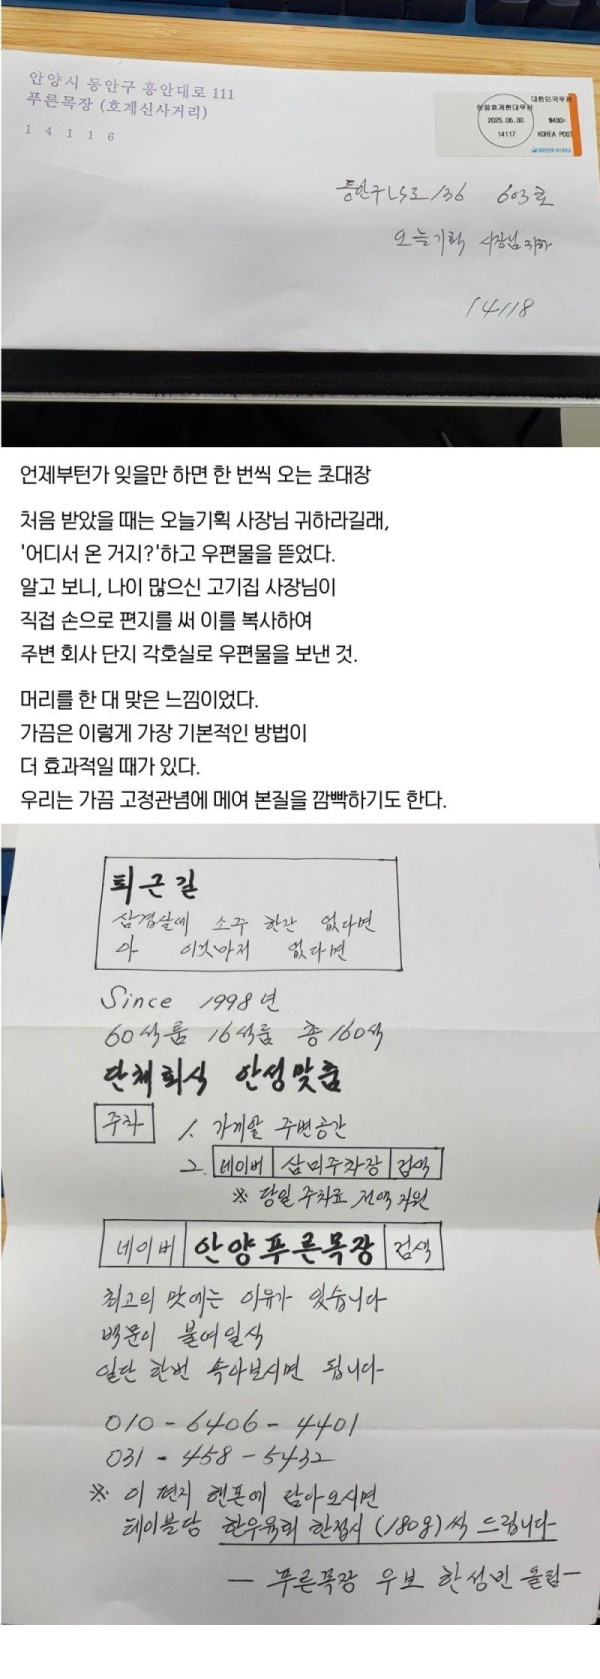 안양시 동안구 흥안대로 111
푸른목장 (호계신사거리)
1 4 1 1 6
대한민국우편
안양호계현대우체국
2025. 06. 30
₩430
14117
KOREA POST
동안구 LS로 136 603호
오늘기획 사장님 귀하
14118
언제부턴가 잊을만 하면 한 번씩 오는 초대장
처음 받았을 때는 오늘기획 사장님 귀하라길래,
'어디서 온 거지?'하고 우편물을 뜯었다.
알고 보니, 나이 많으신 고기집 사장님이
직접 손으로 편지를 써 이를 복사하여
주변 회사 단지 각호실로 우편물을 보낸 것.
머리를 한 대 맞은 느낌이었다.
가끔은 이렇게 가장 기본적인 방법이
더 효과적일 때가 있다.
우리는 가끔 고정관념에 메여 본질을 깜빡하기도 한다.
퇴근길
삼겹살에 소주 한잔 없다면
아 이것마저 없다면
Since 1998년
60석룸 16석룸 총 160석
단체회식 안성맞춤
주차 1. 가게앞 주변공간
2. 네이버 삼미주차장 검색
※ 당일 주차료 전액 지원
네이버 안양푸른목장 검색
최고의 맛에는 이유가 있습니다
백문이 불여일식
일단 한번 속아보시면 됩니다
010-6406-4401
031-458-5432
※ 이 편지 핸폰에 담아오시면
테이블당 한우육회 한접시 (180g)씩 드립니다
- 푸른목장 우보 한성빈 올림 -